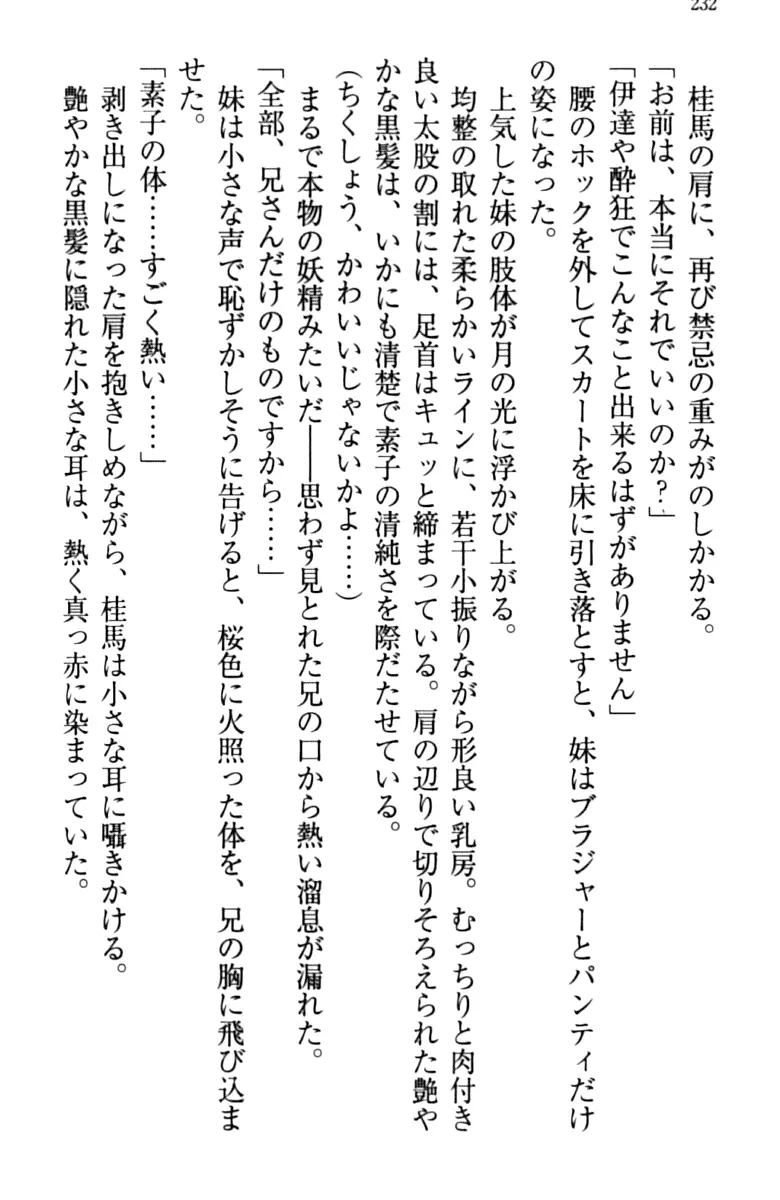 232
桂馬の肩に、再び禁忌の重みがのしかかる。
「お前は、本当にそれでいいのか？」
「伊達や酔狂でこんなこと出来るはずがありません」
腰のホックを外してスカートを床に引き落とすと、妹はブラジャーとパンティだけ
の姿になった。
上気した妹の肢体が月の光に浮かび上がる。
均整の取れた柔らかいラインに、若干小振りながら形良い乳房。むっちりと肉付き
良い太股の割には、足首はキュッと締まっている。肩の辺りで切りそろえられた艶や
かな黒髪は、いかにも清楚で素子の清純さを際だたせている。
（ちくしょう、かわいいじゃないかよ……）
まるで本物の妖精みたいだ――思わず見とれた兄の口から熱い溜息が漏れた。
「全部、兄さんだけのものですから……」
妹は小さな声で恥ずかしそうに告げると、桜色に火照った体を、兄の胸に飛び込ま
せた。
「素子の体……すごく熱い……」
剥き出しになった肩を抱きしめながら、桂馬は小さな耳に囁きかける。
艶やかな黒髪に隠れた小さな耳は、熱く真っ赤に染まっていた。